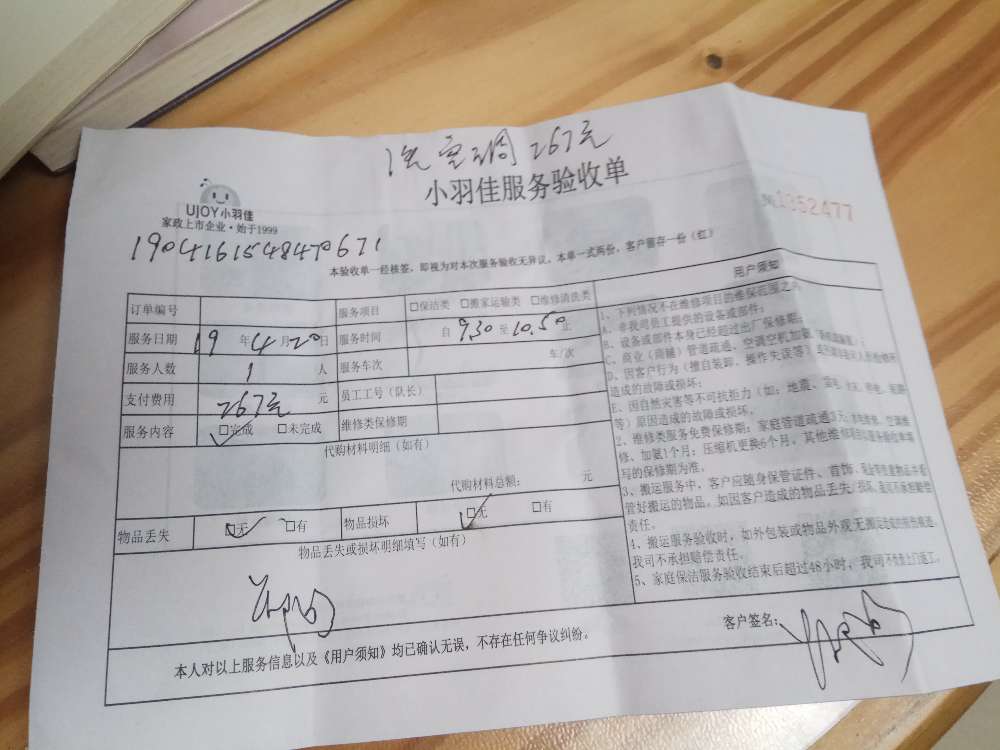 洗空调 267元
小羽佳服务验收单
UJOY小羽佳
家政上市企业·始于1999
№1352477
1904161548470671
本验收单一经核签，即视为对本次服务验收无异议。本单一式两份，客户留存一份（红）
订单编号 服务项目 □保洁类 □搬家运输类 □维修清洗类
服务日期 19 年 4 月 20 日 服务时间 自 9.30 至 10.50 止
服务人数 1 人 服务车次 车/次
支付费用 267元 元 员工工号（队长）
服务内容 □完成 □未完成 维修类保修期
代购材料明细（如有）
代购材料总额： 元
物品丢失 □无 □有 物品损坏 □无 □有
物品丢失或损坏明细填写（如有）
用户须知
1、下列情况不在维修项目的维保范围之内：
A、非我司员工提供的设备或部件；
B、设备或部件本身已经超过出厂保修期；
C、商业（商铺）管道疏通、空调空机加氨
D、因客户行为（擅自装卸、操作失误等）
造成的故障或损坏；
E、因自然灾害等不可抗拒力（如：地震、
等）原因造成的故障或损坏。
2、维修类服务免费保修期：家庭管道疏通3天；
修、加氨1个月；压缩机更换6个月，其他维修项目以服务验收单填
写的保修期为准。
3、搬运服务中，客户应随身保管证件、首饰、
管好搬运的物品，如因客户造成的物品丢失/损坏，我司不承担赔偿
责任。
4、搬运服务验收时，如外包装或物品外观无搬运造成的损伤痕迹，
我司不承担赔偿责任。
5、家庭保洁服务验收结束后超过48小时，我司不免费上门返工。
客户签名：
本人对以上服务信息以及《用户须知》均已确认无误，不存在任何争议纠纷。